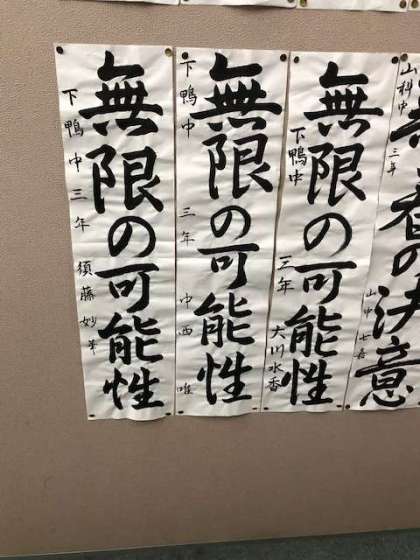 山科中 三年
の決意
下鴨中 三年 大川水香
無限の可能性
下鴨中 三年 中西 唯
無限の可能性
下鴨中 三年 須藤妙
無限の可能性